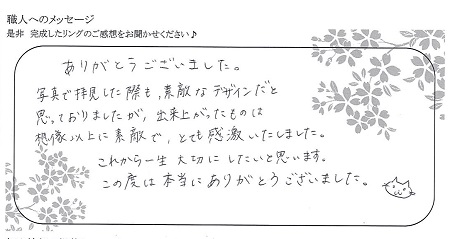 職人へのメッセージ
是非 完成したリングのご感想をお聞かせください♪
ありがとうございました。
写真で拝見した際も、素敵なデザインだと
思っておりましたが、出来上がったものは
想像以上に素敵で、とても感激いたしました。
これから一生 大切にしたいと思います。
この度は本当にありがとうございました。